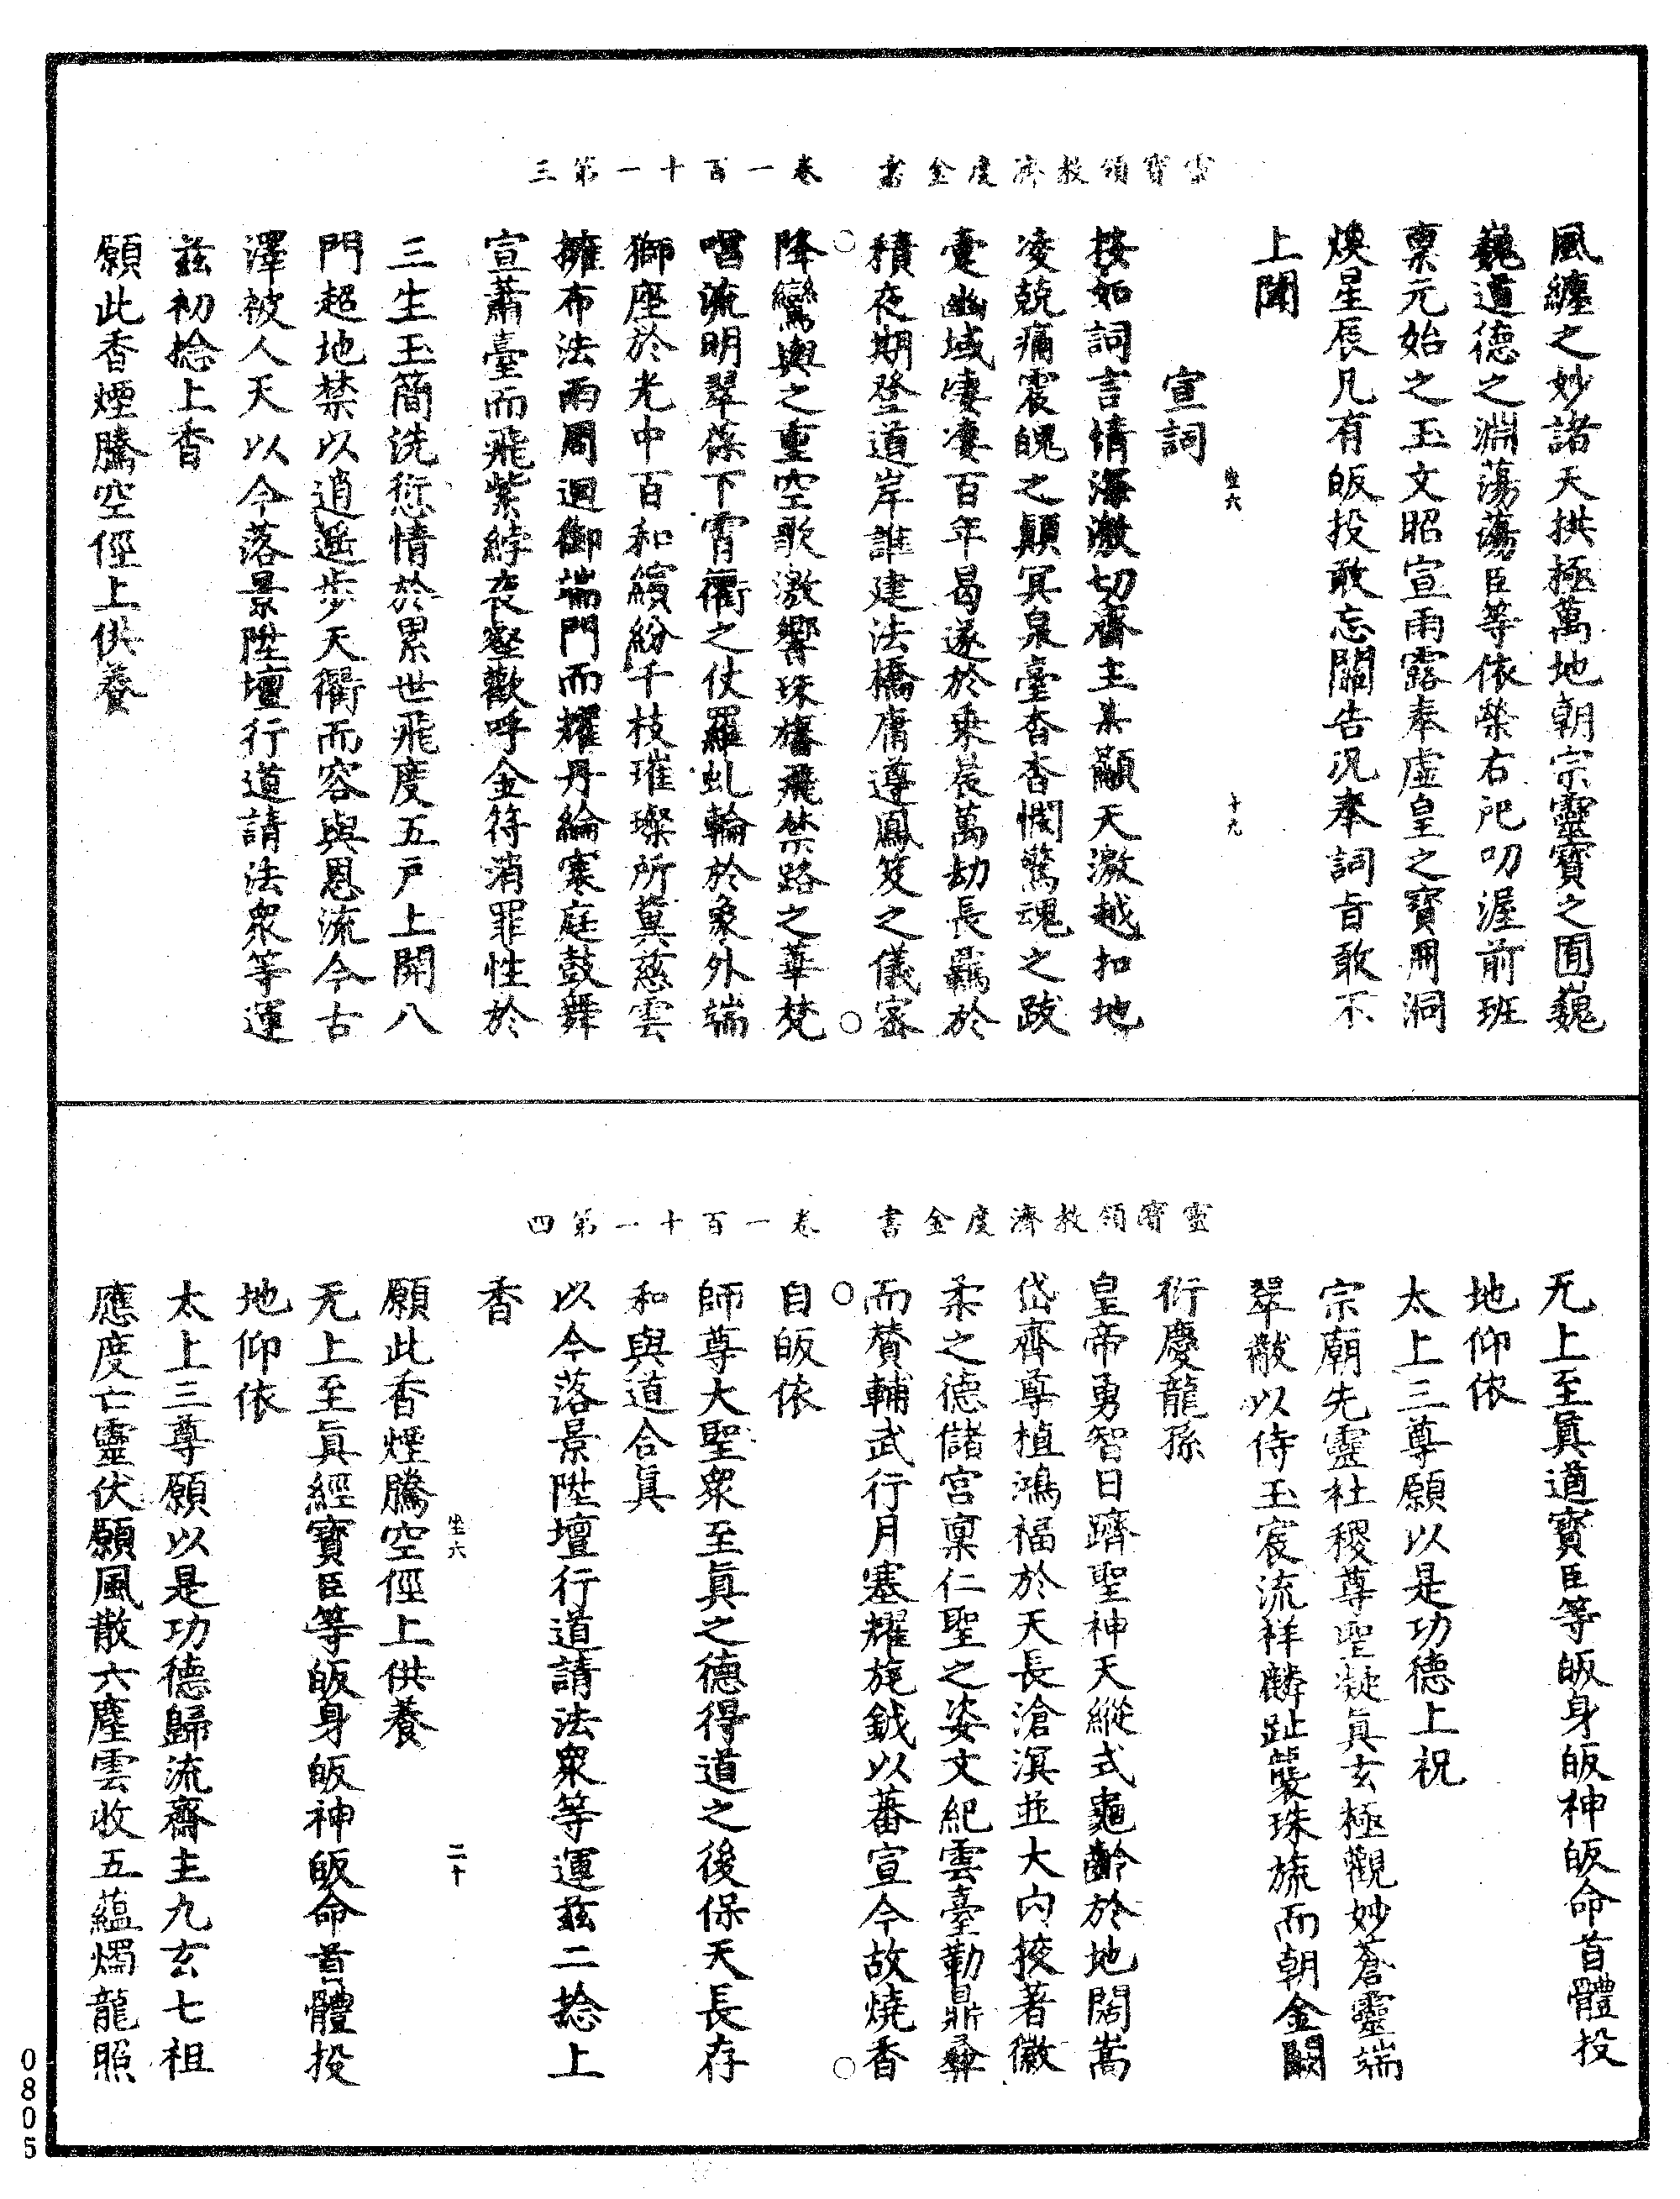 靈寶領教濟度金書　卷一百十一第三
風纏之妙諸天拱極萬地朝宗靈寶之囿巍
巍道德之淵蕩蕩臣等依榮右祀叨渥前班
稟元始之玉文昭宣雨露奉虛皇之寶用洞
煥星辰凡有皈投敢忘關告況奉詞旨敢不
上聞
宣詞
坐六　十九
按如詞言情海激切齋主某顧天激越扣地
凌兢痛震魄之顛冥泉臺杳杳憫驚魂之跋
疐幽域凄凄百年曷遂於乘晨萬劫長羈於
積夜期登道岸誰建法橋庸遵鳳笈之儀密
降鸞輿之重空歌激響珠旛飛禁路之華梵
唱流明翠葆下霄衢之仗羅虬輪於象外端
獅座於光中百和繽紛千枝璀璨所冀慈雲
擁布法雨周迴御端門而耀丹綸寒庭鼓舞
宣蕭臺而飛紫綍夜壑歡呼金符消罪性於
三生玉簡洗愆情於累世飛度五戶上開八
門超地禁以逍遥步天衢而容與恩流今古
澤被人天以今落景陞壇行道請法衆等運
茲初捻上香
願此香煙騰空徑上供養
靈寶領教濟度金書　卷一百十一第四
无上至眞道寶臣等皈身皈神皈命首體投
地仰依
太上三尊願以是功德上祝
宗廟先靈社稷尊聖凝眞玄極觀妙蒼靈端
翠黻以侍玉宸流祥麟趾襲珠旒而朝金闕
衍慶龍孫
皇帝勇智日躋聖神天縱式龜齡於地闊嵩
岱齊尊植鴻福於天長滄溟並大內掖著徽
柔之德儲宮稟仁聖之姿文紀雲臺勒鼎彝
而贊輔武行月塞耀旄鉞以蕃宣今故燒香
自皈依
師尊大聖衆至眞之德得道之後保天長存
和與道合眞
以今落景陞壇行道請法衆等運茲二捻上
香
坐六　二十
願此香煙騰空徑上供養
无上至眞經寶臣等皈身皈神皈命首體投
地仰依
太上三尊願以是功德歸流齋主九玄七祖
應度亡靈伏願風散六塵雲收五蘊燭龍照
0805